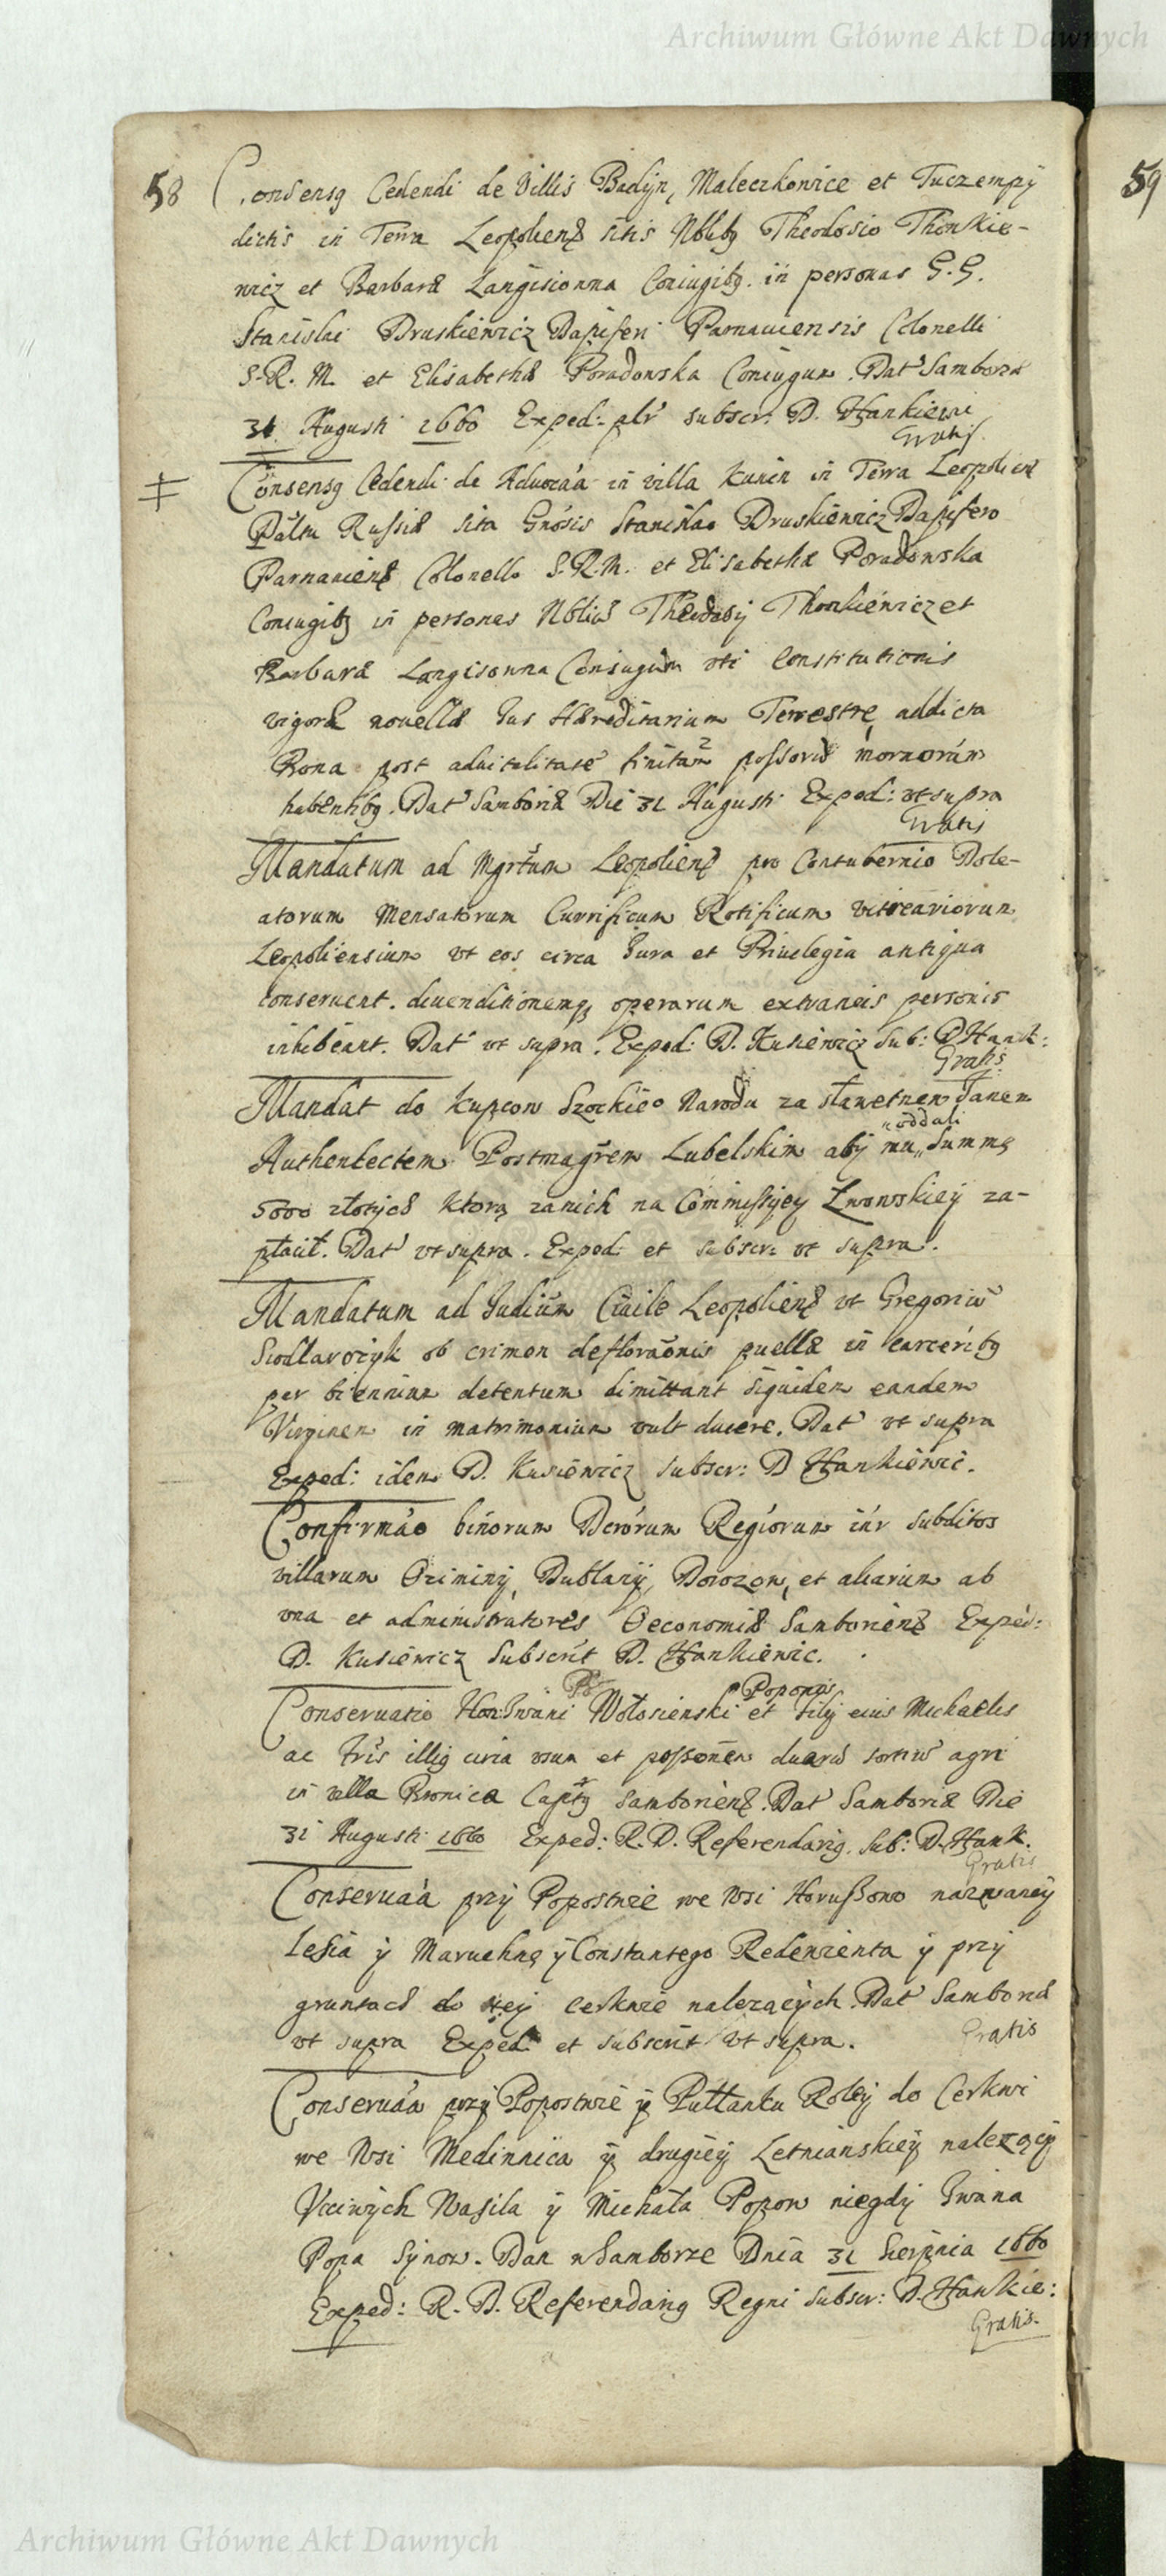 Archiwum Główne Akt Dawnych
58
59
Consensg Cedendi de Villis Badijn, Maleczkowice et Tuczempij
dictis in Terra Leopoliens sitis Nblibg Theodosio Thonkie-
wicz et Barbara Langisionna Coniugibg. in personas G. G.
Stanislai Druskiewicz Dapiferi Parnauiensis Colonelli
S. R. M. et Elisabetha Poradowska Coniugum. Dat Samboriæ
31 Augusti 1660 Exped: subscr: D. Hankiewi
Gratis.
Consensg Cedendi de Aduocaâ in villa Kunin in Terra Leopolien
Pâltu Russiæ sita Gnosis Stanislao Druskiewicz Dapifero
Parnauiens Colonello S. R. M. et Elisabetha Poradowska
Coniugibg in personas Nbliũ Theodosij Thonkiewicz et
Barbara Langisonna Coniugum vti Constitutionis
vigore nouellæ Jus Hæreditarium Terrestre addicta
Bona post aduitalitatẽ finitam possorũ
habentibg. Dat Samboriæ Die 31 Augusti Exped: vt supra
Gratis
Mandatum ad Mgrtum Leopoliens pro Contubernio Dole-
atorum Mensatorum Currificum Rotificum vitreariorum
Leopoliensium vt eos circa Jura et Priuilegia antiqua
conseruent. diuenditionemq operarum extraneis personis
inhibeant. Dat vt supra. Exped: D. Kusiewicz Sub: D Hank:
Gratis
Mandat do kupcow Szockieo Narodu za sławetnem Janem
uoddali
Authenlectem Postmagrem Lubelskim abÿ mu,, Summę
5000 złotych ktorą zanich na Commissyey Lwowskieÿ za-
płacił. Dat vt supra. Exped: et subscr: vt supra.
Mandatum ad Judium Ciuile Leopoliens vt Gregoriũ
Siodlarczyk ob crimen defloraonis puellæ in carceribg
per biennium detentum dimittant siquidem eandem
Virginem in matrimonium vult ducere. Dat vt supra
Exped: idem D. Kusiewicz subscr: D Hankiewic.
Confirmao binorum Dcrorum Regiorum inr subditos
villarum Oziminÿ, Dublanÿ, Dorozow, et aliarum ab
vna et administratores Oeconomiæ Samboriens Exped:
D. Kusiewicz Subscrit D. Hankiewic.
Poponis
Conseruatio Iwani Wołosienski et filij eius Michaelis
ac fris illig circa vsum et possonem duarũ sortiũ agri
in villa Bronica Captg Samboriens. Dat Samboriæ Die
31 Augusti 1660 Exped: R. D. Referendarig. Sub: D. Hank.
Gratis
Conseruaa przÿ Popostwie we Wsi Horussowo nazwaneÿ
Lesia ÿ Maruchnę ÿ Constantego Redenzienta ÿ przÿ
gruntach do teÿ Cerkwie nalezącÿch. Dat Samboriæ
vt supra Exped: et subscrit vt supra.
Gratis
Conseruaa przÿ Popostwie ÿ Pułłanku Roleÿ do Cerkwi
we Wsi Medinnica ÿ drugieÿ Letnianskieÿ nalezącÿ
Vcciwÿch Wasila ÿ Michała Popow niegdÿ Iwana
Popa Synow. Dan w Samborze Dnia 31 Sierpnia 1660
Exped: R. D. Referendarig Regni subscr: D. Hankie:
Gratis.
Archiwum Główne Akt Dawnych